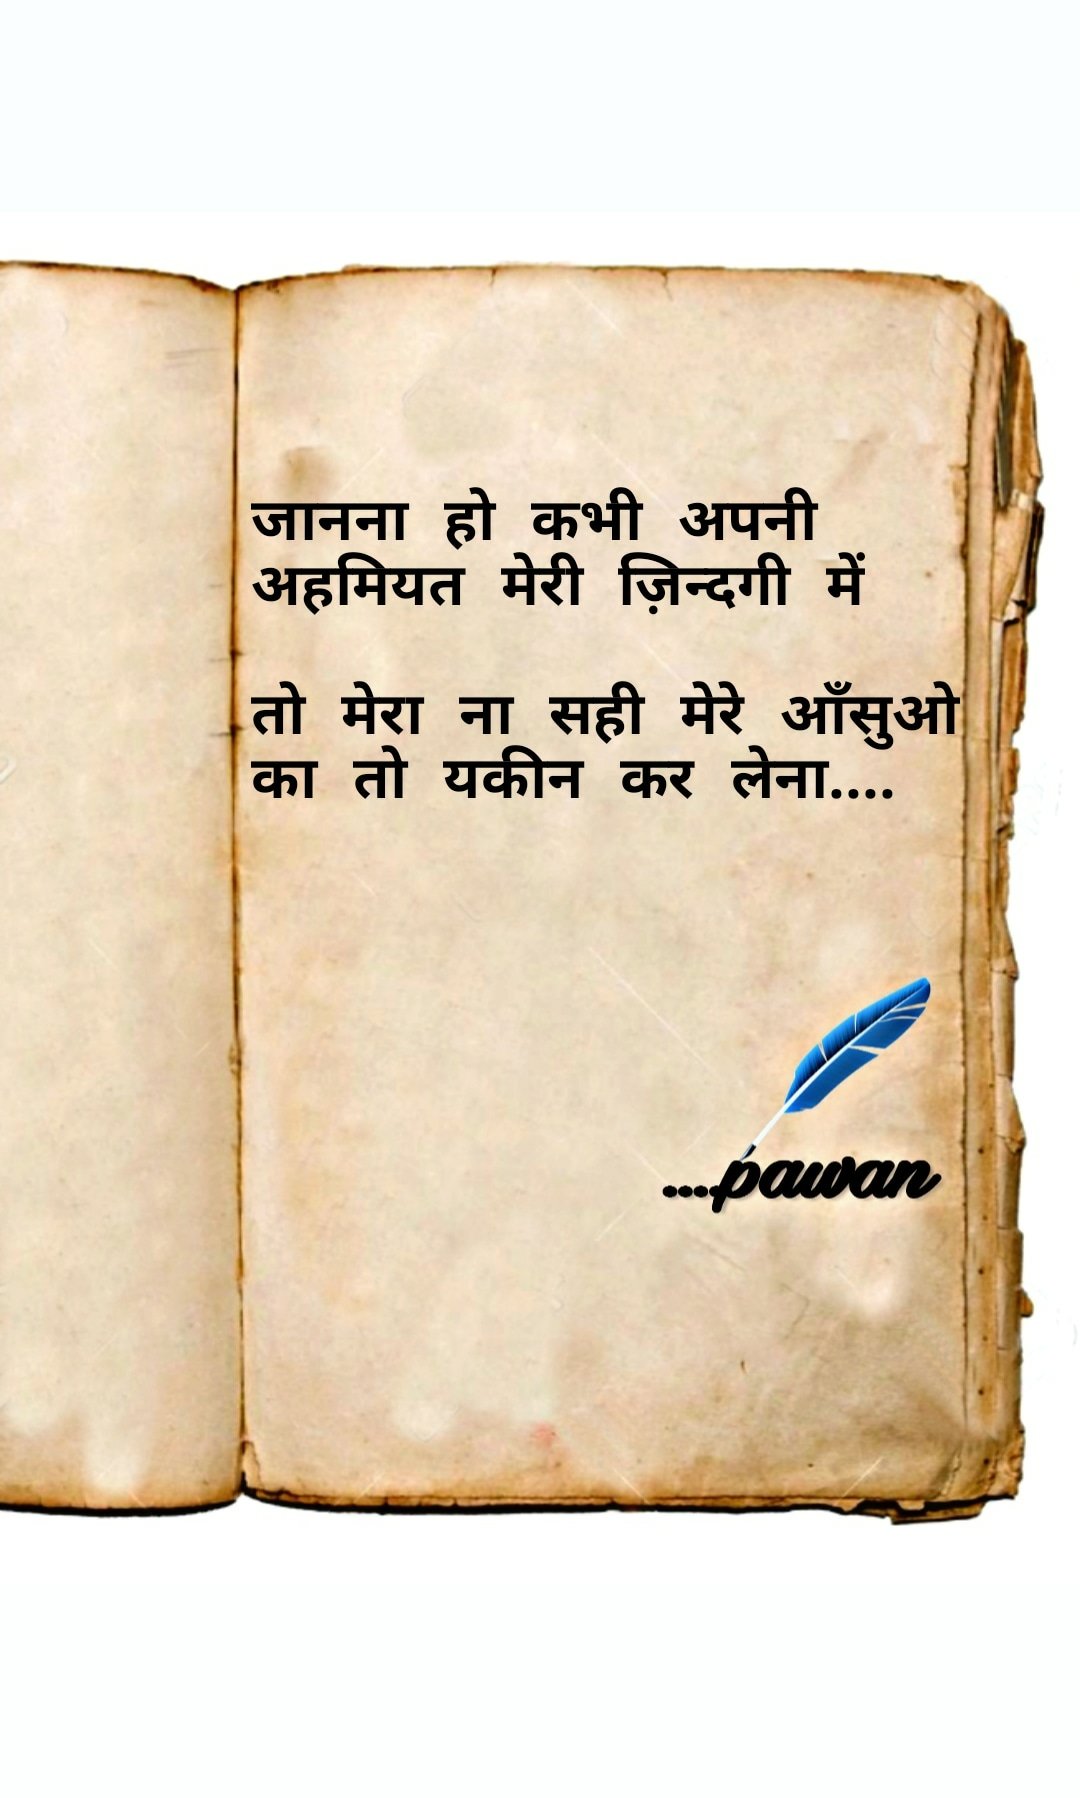 जानना हो कभी अपनी
अहमियत मेरी ज़िन्दगी में
तो मेरा ना सही मेरे आँसुओ
का तो यकीन कर लेना....
....pawan